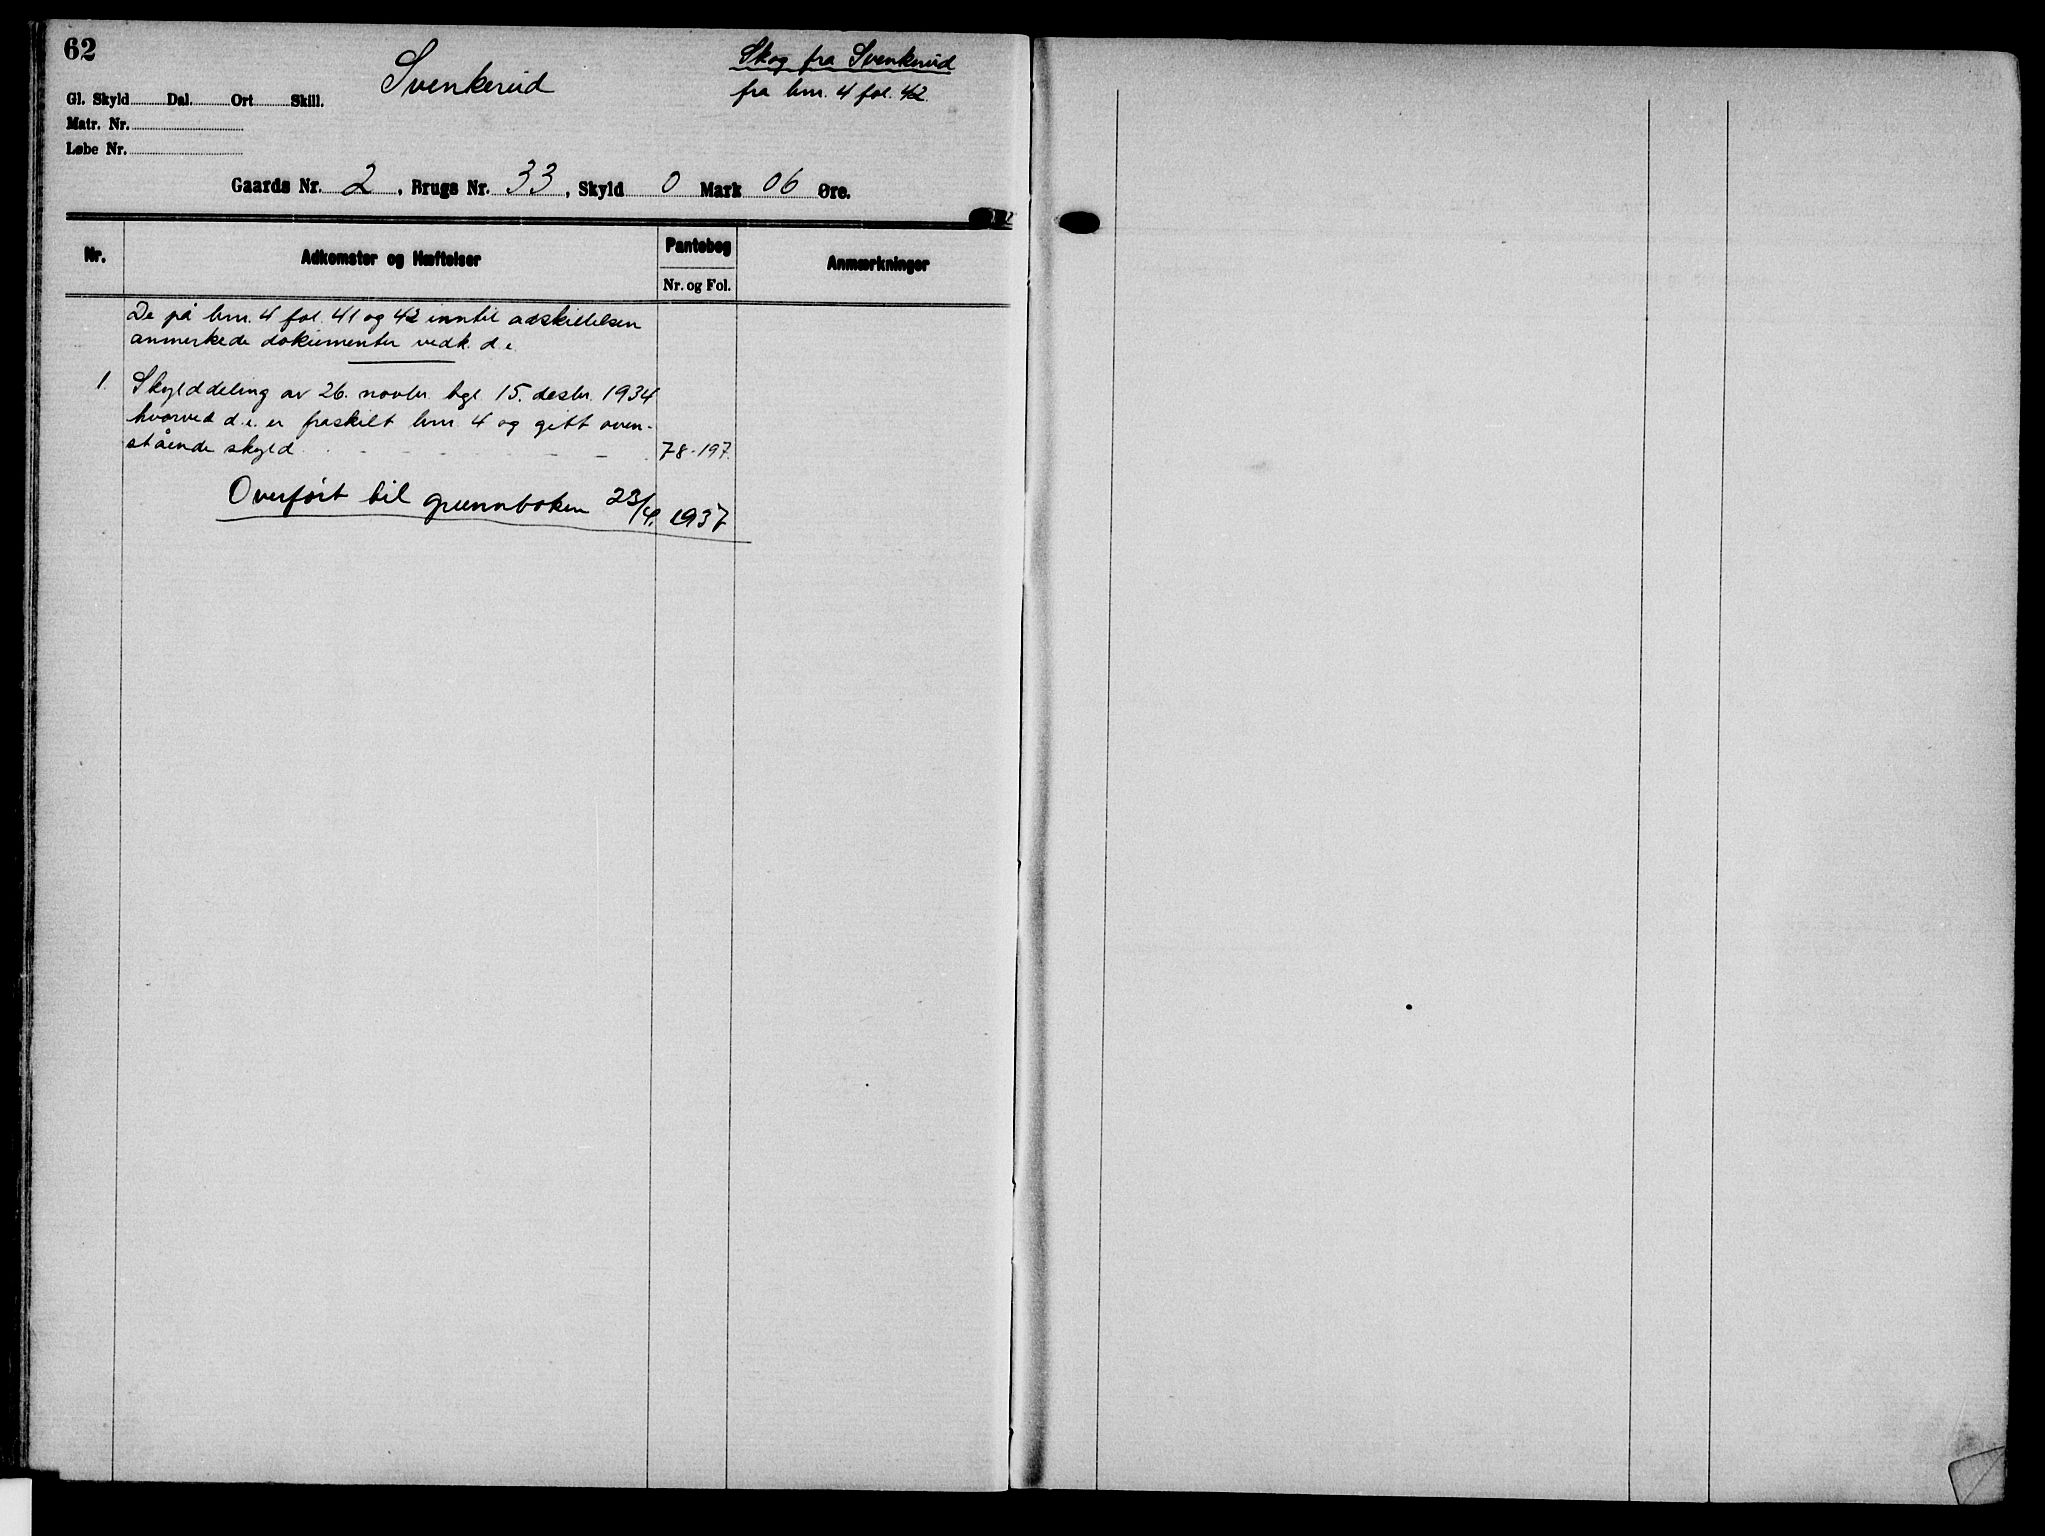 62
Svenkerud
Skog fra Svenkerud
fra bnr. 4 fol. 42.
Gl. Skyld Dal. Ort Skill.
Matr. Nr.
Løbe Nr.
Gaards Nr. 2, Brugs Nr. 33, Skyld 0 Mark 06 Øre.
Nr. Adkomster og Hæftelser Pantebog Anmærkninger
Nr. og Fol.
De på bnr. 4 fol. 41 og 42 inntil adskillelsen
anmerkede dokumenter vedk. d.e.
1. Skylddeling av 26. novbr. tgl. 15. desbr. 1934
hvorved d.e. er fraskilt bnr. 4 og gitt oven-
stående skyld 78-197.
Overført til grunnboken 23/4. 1937